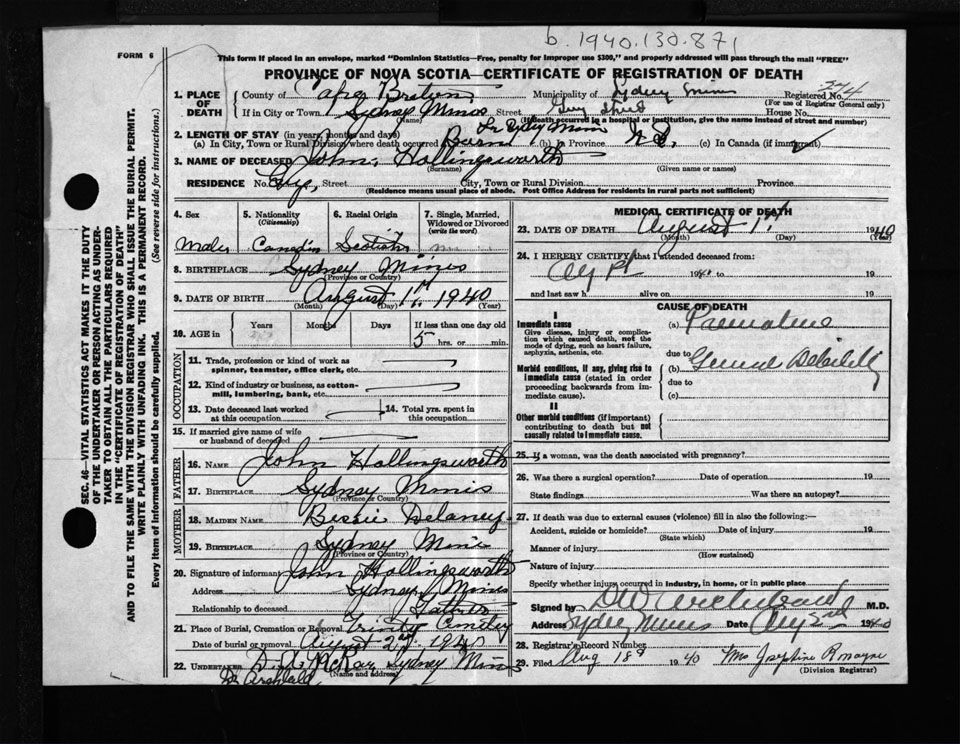 b. 1940.130.871
FORM 6
This form if placed in an envelope, marked "Dominion Statistics—Free, penalty for improper use $300," and properly addressed will pass through the mail "FREE"
PROVINCE OF NOVA SCOTIA—CERTIFICATE OF REGISTRATION OF DEATH
1. PLACE OF DEATH
County of Cape Breton Municipality of Sydney Mines Registered No.
(For use of Registrar General only)
If in City or Town Sydney Mines Street House No.
(Name) (If death occurred in a hospital or institution, give the name instead of street and number)
2. LENGTH OF STAY (in years, months and days)
(a) In City, Town or Rural Division where death occurred Born (b) In Province N.S. (c) In Canada (if immigrant)
3. NAME OF DECEASED John Hollingsworth
(Surname) (Given name or names)
RESIDENCE No. Street, City, Town or Rural Division Province
(Residence means usual place of abode. Post Office Address for residents in rural parts not sufficient)
4. Sex
Male
5. Nationality (Citizenship)
6. Racial Origin
7. Single, Married, Widowed or Divorced (write the word)
8. BIRTHPLACE Sydney Mines
(Province or Country)
9. DATE OF BIRTH August 1st 1940
(Month) (Day) (Year)
10. AGE in Years Months Days If less than one day old
5 hrs. or min.
OCCUPATION
11. Trade, profession or kind of work as spinner, teamster, office clerk, etc.
12. Kind of industry or business, as cotton-mill, lumbering, bank, etc.
13. Date deceased last worked at this occupation
14. Total yrs. spent in this occupation.
15. If married give name of wife or husband of deceased
FATHER
16. NAME John Hollingsworth
17. BIRTHPLACE Sydney Mines
(Province or Country)
MOTHER
18. MAIDEN NAME Bessie Delaney
19. BIRTHPLACE Sydney Mines
(Province or Country)
20. Signature of informant John Hollingsworth
Address Sydney Mines
Relationship to deceased Father
21. Place of Burial, Cremation or Removal Trinity Cemetery
Date of burial or removal August 2nd 1940
22. UNDERTAKER McKay Sydney Mines
(Name and address)
Dr Archibald
MEDICAL CERTIFICATE OF DEATH
23. DATE OF DEATH August 1st 1940
(Month) (Day) (Year)
24. I HEREBY CERTIFY that I attended deceased from:
1940 to 19
and last saw h alive on 19
CAUSE OF DEATH
I
Immediate cause
Give disease, injury or complication which caused death, not the mode of dying, such as heart failure, asphyxia, asthenia, etc.
(a) Premature
due to
Morbid conditions, if any, giving rise to immediate cause (stated in order proceeding backwards from immediate cause).
(b) General Debility
due to
(c)
II
Other morbid conditions (if important) contributing to death but not causally related to immediate cause.
25. If a woman, was the death associated with pregnancy?
26. Was there a surgical operation? Date of operation 19
State findings Was there an autopsy?
27. If death was due to external causes (violence) fill in also the following:—
Accident, suicide or homicide? Date of injury 19
(State which)
Manner of injury
(How sustained)
Nature of injury
Specify whether injury occurred in industry, in home, or in public place
Signed by Archibald M.D.
Address Sydney Mines Date Aug 2nd 1940
28. Registrar's Record Number
29. Filed Aug 1940 Mrs Josephine Romayne
(Division Registrar)
SEC. 46—VITAL STATISTICS ACT MAKES IT THE DUTY
OF THE UNDERTAKER OR PERSON ACTING AS UNDER-
TAKER TO OBTAIN ALL THE PARTICULARS REQUIRED
IN THE "CERTIFICATE OF REGISTRATION OF DEATH"
AND TO FILE THE SAME WITH THE DIVISION REGISTRAR WHO SHALL ISSUE THE BURIAL PERMIT.
WRITE PLAINLY WITH UNFADING INK. THIS IS A PERMANENT RECORD.
Every item of information should be carefully supplied. (See reverse side for instructions.)